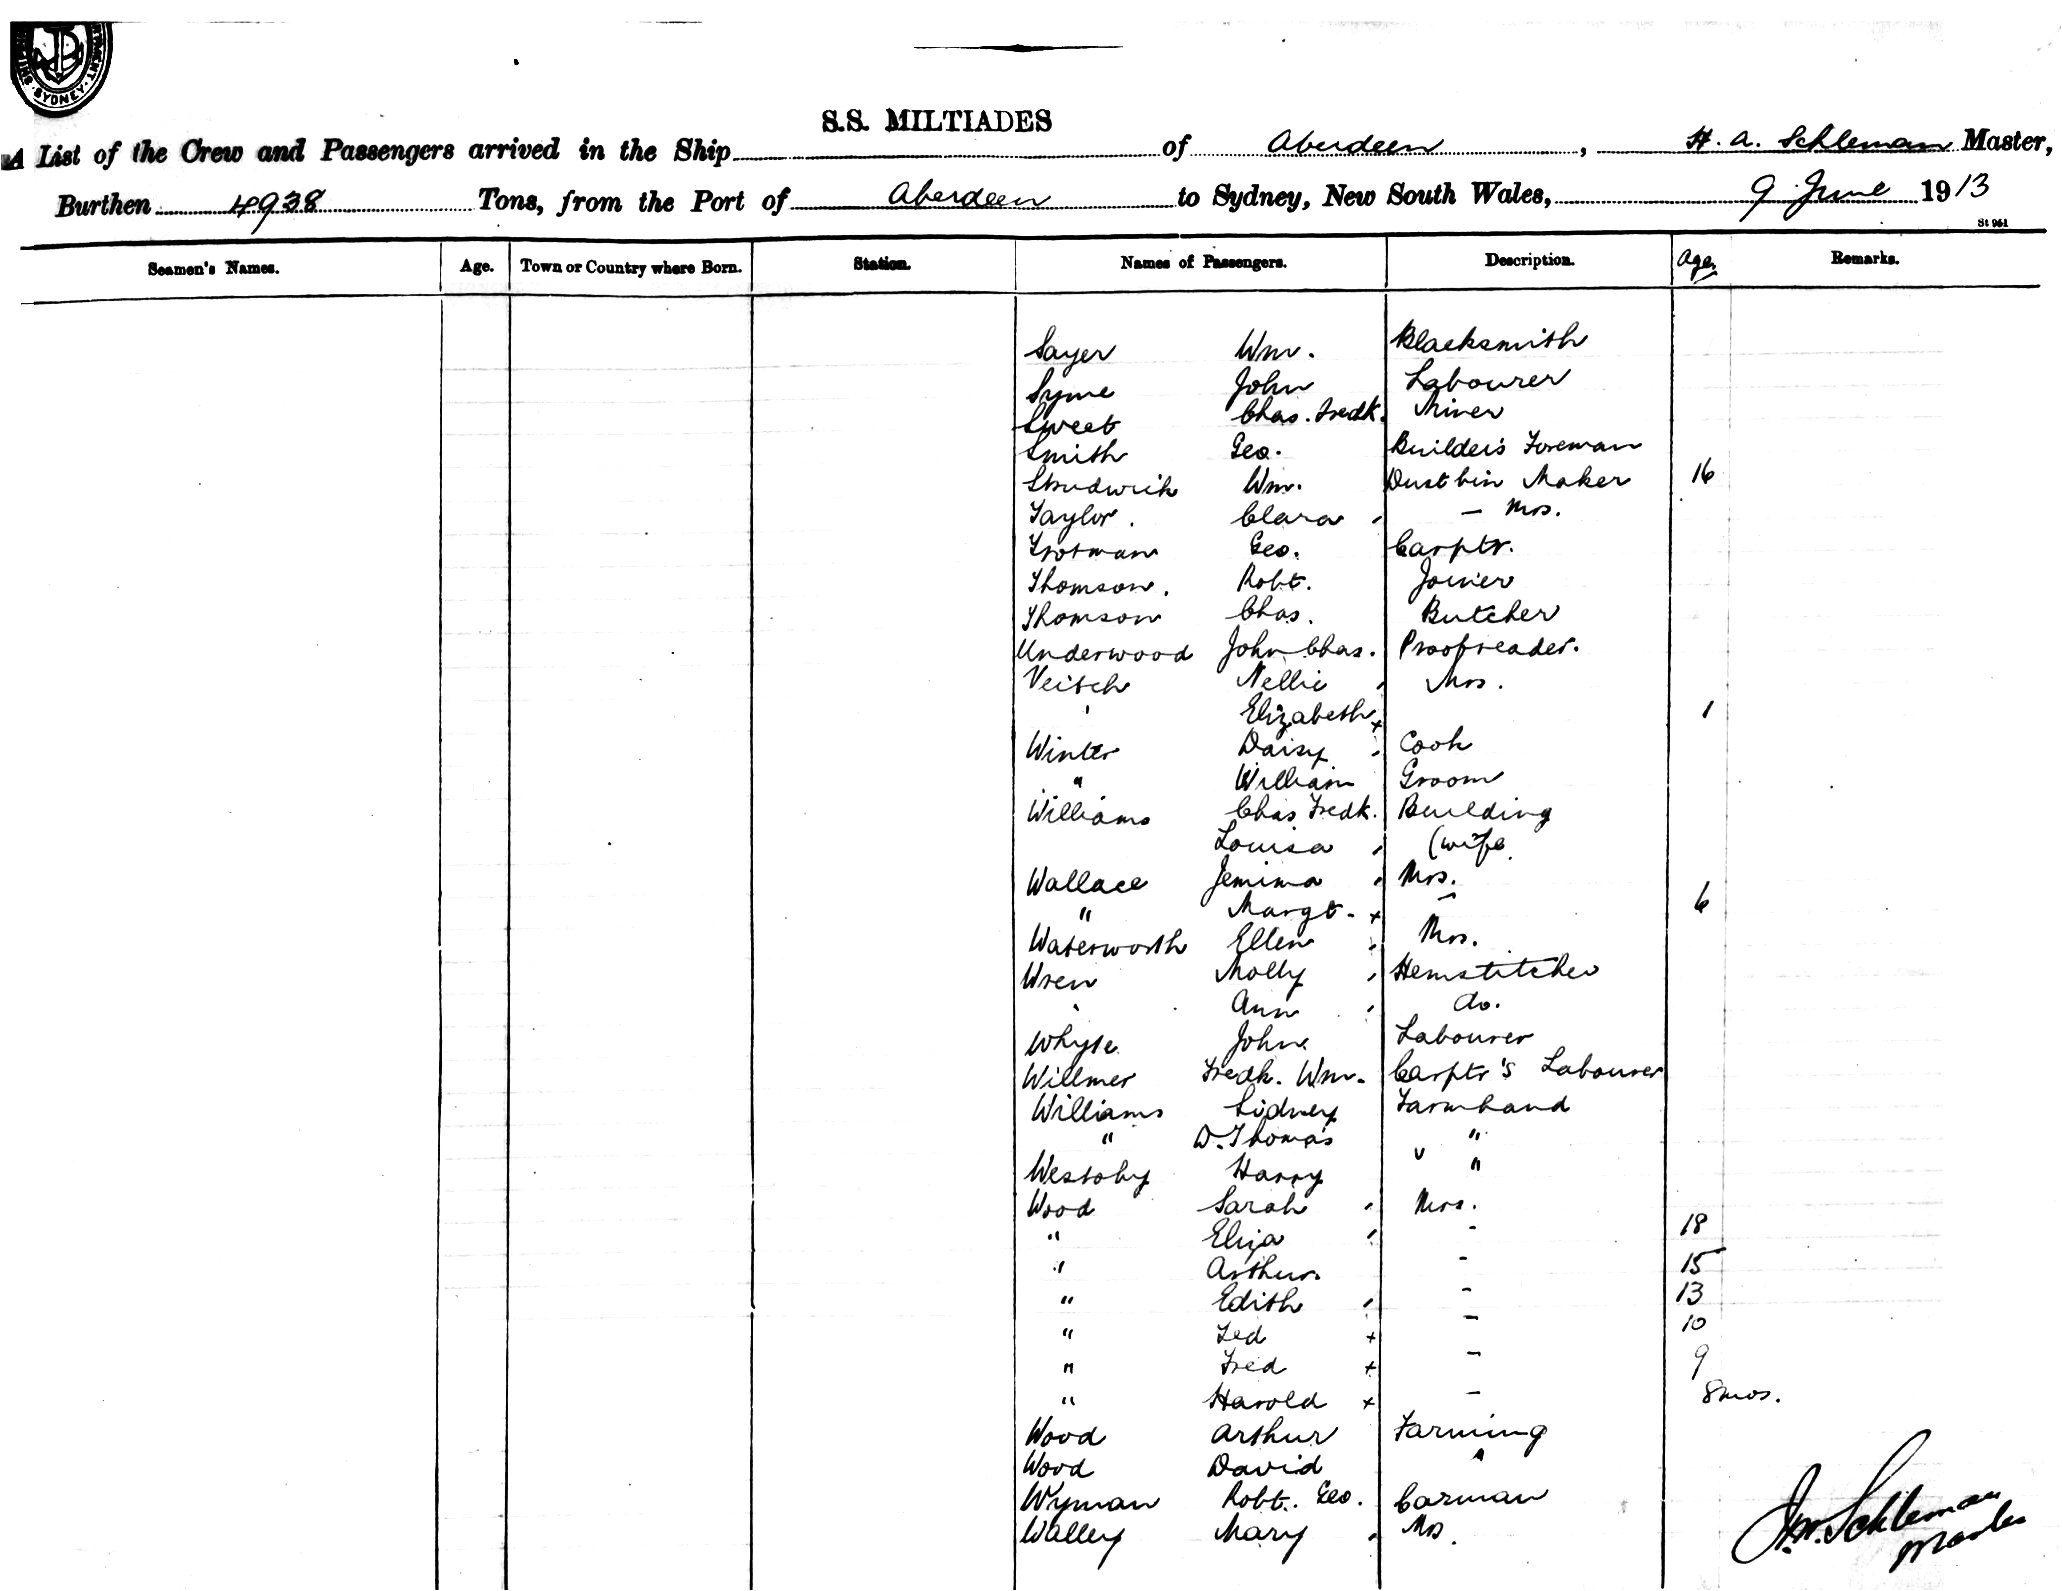 SYDNEY
S.S. MILTIADES
A List of the Crew and Passengers arrived in the Ship of Aberdeen, H. A. Schleman Master,
Burthen 4938 Tons, from the Port of Aberdeen to Sydney, New South Wales, 9 June 1913
St 961
Seamen's Names. Age. Town or Country where Born. Station. Names of Passengers. Description. Age. Remarks.
Sayer Wm. Blacksmith
Syme John Labourer
Sweet Chas. Fredk. Miner
Smith Geo. Builder's Foreman
Strudwick Wm. Dustbin Maker 16
Taylor. Clara - Mrs.
Trotman Geo. Carptr.
Thomson. Robt. Joiner
Thomson Chas. Butcher
Underwood John Chas. Proofreader.
Veitch Nellie Mrs.
" Elizabeth + 1
Winter Daisy Cook
" William Groom
Williams Chas Fredk. Building
Louisa (wife
Wallace Jemima Mrs.
" Margt. + - 6
Waterworth Ellen Mrs.
Wren Molly Hemstitcher
" Ann do.
Whyte John Labourer
Willmer Fredk. Wm. Carptr's Labourer
Williams Sidney Farmhand
" D. Thomas "
Westoby Harry " "
Wood Sarah Mrs.
" Eliza - 18
" Arthur - 15
" Edith - 13
" Ted + - 10
" Fred + - 9
" Harold + - 8mos.
Wood Arthur Farming
Wood David "
Wyman Robt. Geo. Carman
Walley Mary Mrs.
Schleman
Master